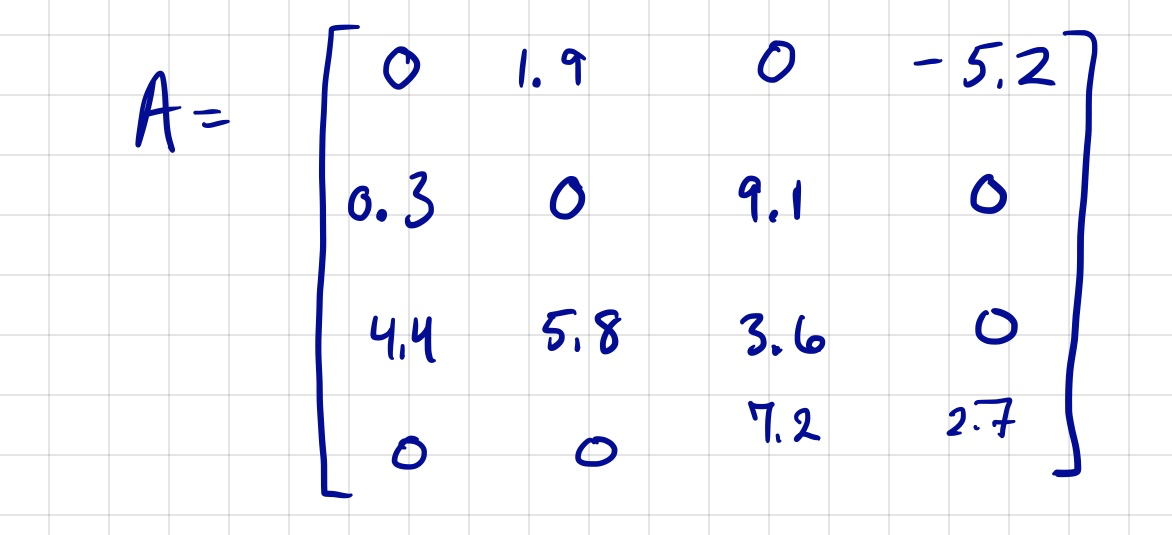 A = [ 0 1.9 0 -5.2
0.3 0 9.1 0
4.4 5.8 3.6 0
0 0 7.2 2.7 ]